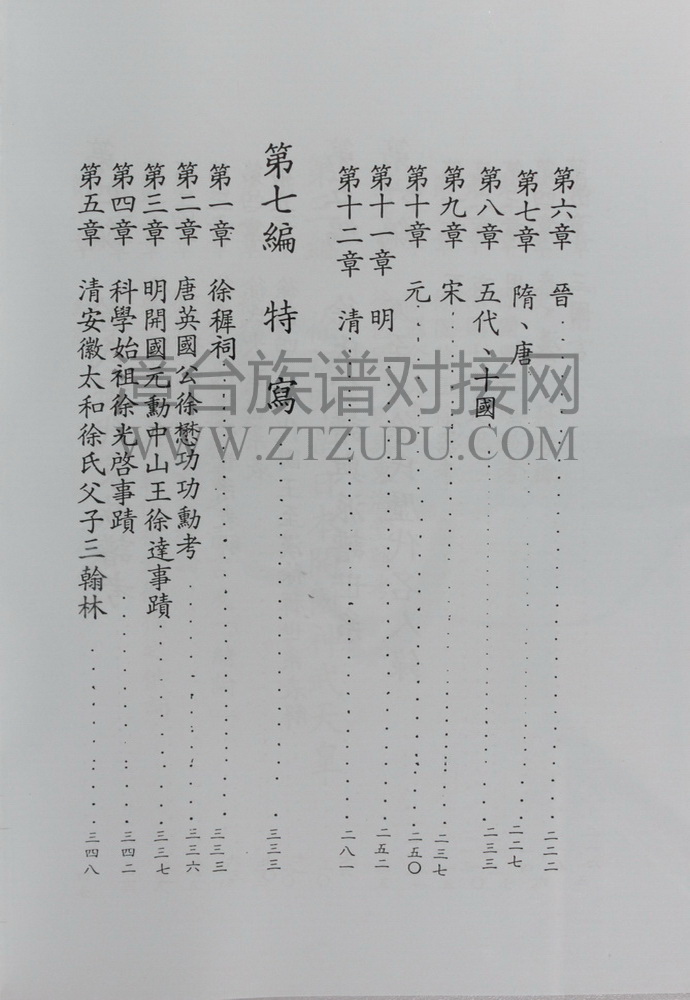 第六章　晉 二二二
第七章　隋、唐 二二七
第八章　五代、十國 二三三
第九章　宋 二三七
第十章　元 二五〇
第十一章　明 二五二
第十二章　清 二八一
第七編　特寫 三三三
第一章　徐穉祠 三三三
第二章　唐英國公徐懋功功勳考 三三六
第三章　明開國元勳中山王徐達事蹟 三三七
第四章　科學始祖徐光啓事蹟 三四二
第五章　清安徽太和徐氏父子三翰林 三四八
漳台族谱对接网
WWW.ZTZUPU.COM